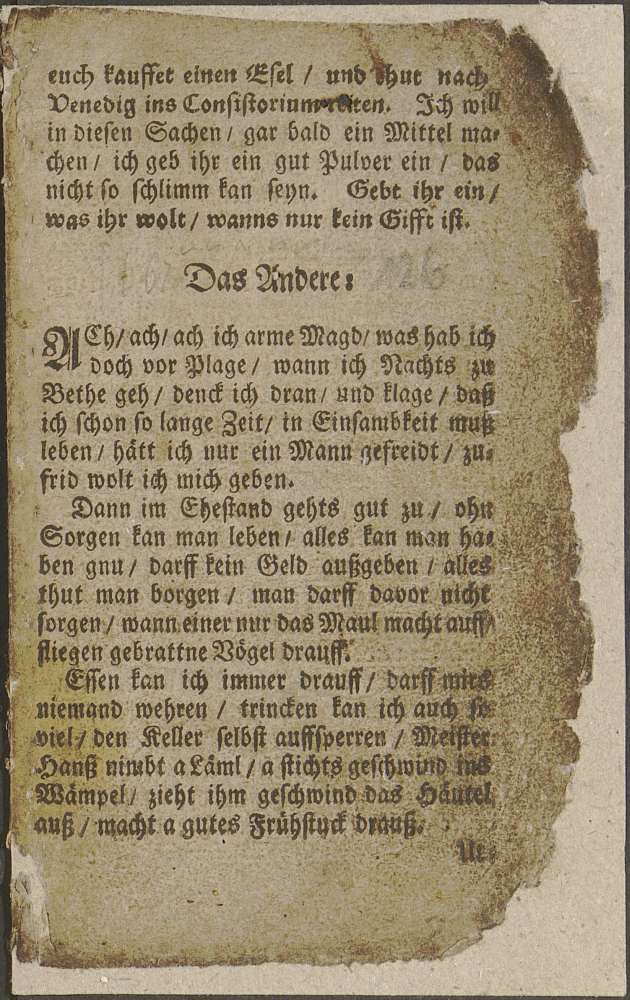 euch kauffet einen Esel / und thut nach
Venedig ins Consistorium reiten. Ich will
in diesen Sachen / gar bald ein Mittel ma⸗
chen / ich geb ihr ein gut Pulver ein / das
nicht so schlimm kan seyn. Gebt ihr ein /
was ihr wolt / wanns nur kein Gifft ist.
Das Andere:
ACh / ach / ach ich arme Magd / was hab ich
doch vor Plage / wann ich Nachts zu
Bethe geh / denck ich dran / und klage / daß
ich schon so lange Zeit / in Einsambkeit muß
leben / hätt ich nur ein Mann gefreidt / zu⸗
frid wolt ich mich geben.
Dann im Ehestand gehts gut zu / ohn
Sorgen kan man leben / alles kan man ha⸗
ben gnu / darff kein Geld außgeben / alles
thut man borgen / man darff davor nicht
sorgen / wann einer nur das Maul macht auff /
fliegen gebrattne Vögel drauff.
Essen kan ich immer drauff / darff mirs
niemand wehren / trincken kan ich auch so
viel / den Keller selbst auffsperren / Meister
Hanß nimbt a Läml / a stichts geschwind ins
Wämpel / zieht ihm geschwind das Häutel
auß / macht a gutes Frühstuck drauß.